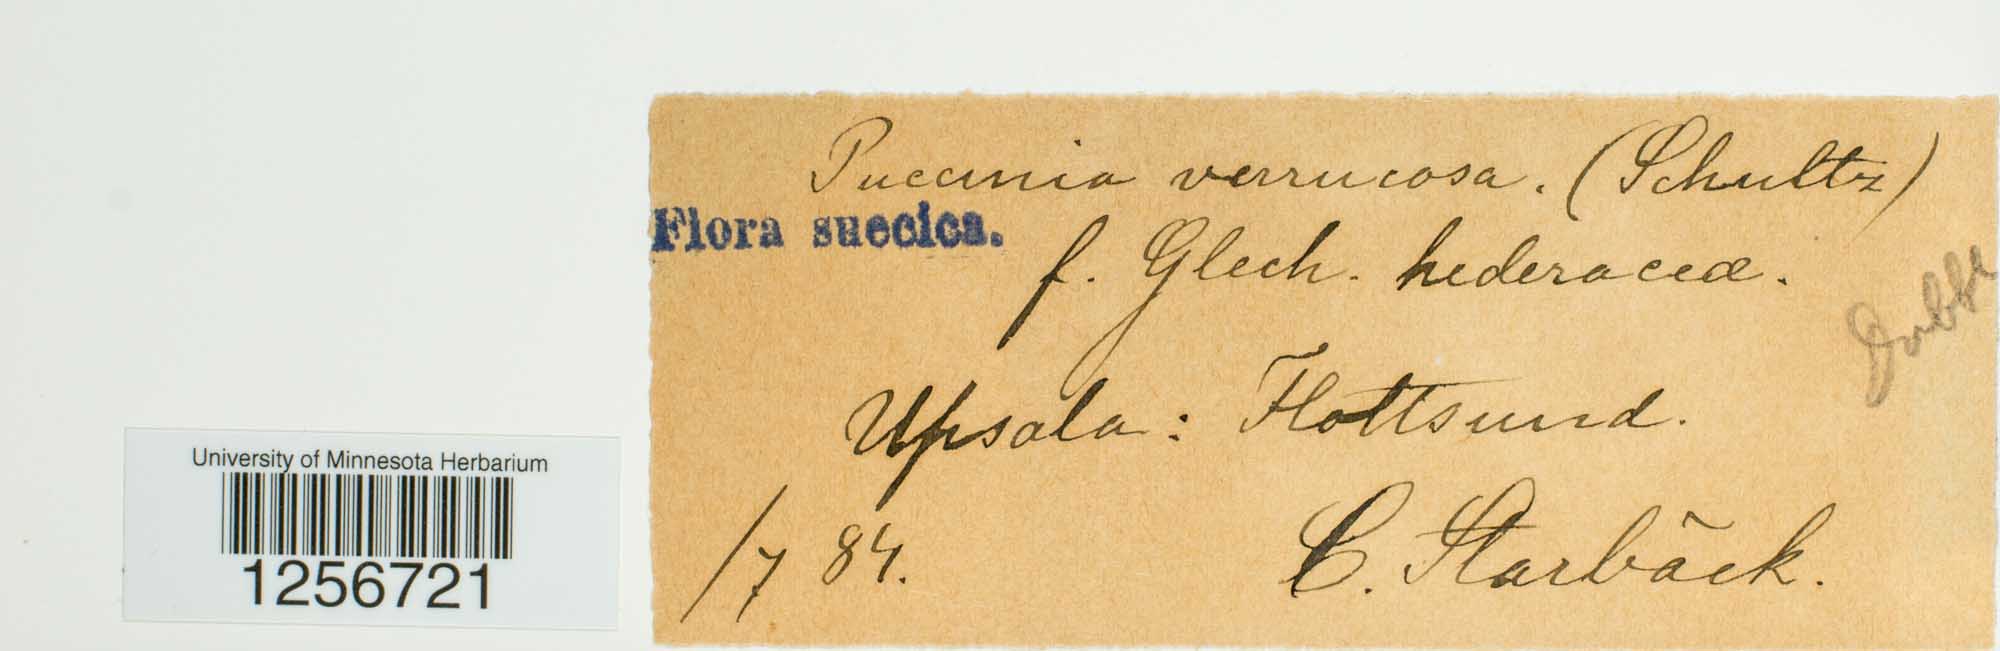 Puccinia verrucosa. (Schultz)
Flora suecica.
f. Glech. hederaceæ.
Upsala: Flottsund.
/7 84.
C. Starbäck.
University of Minnesota Herbarium
1256721